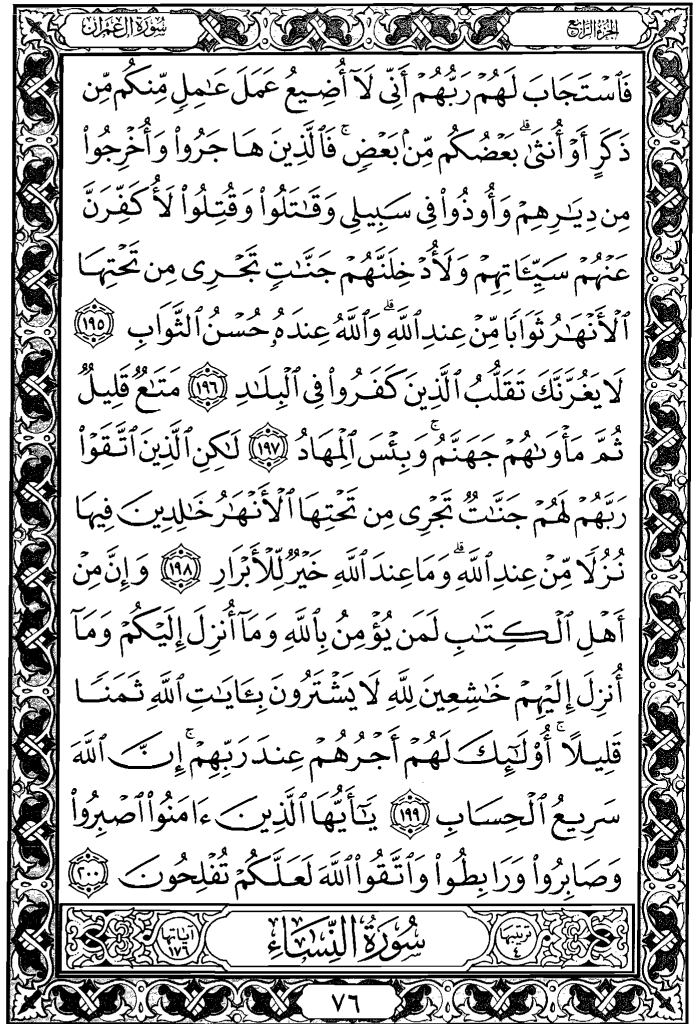 سُورَةُ آلِ عِمْرَانَ
الجُزْءُ الرَّابِعُ
فَٱسْتَجَابَ لَهُمْ رَبُّهُمْ أَنِّى لَآ أُضِيعُ عَمَلَ عَٰمِلٍ مِّنكُم مِّن
ذَكَرٍ أَوْ أُنثَىٰ ۖ بَعْضُكُم مِّنۢ بَعْضٍ ۖ فَٱلَّذِينَ هَاجَرُوا۟ وَأُخْرِجُوا۟
مِن دِيَٰرِهِمْ وَأُوذُوا۟ فِى سَبِيلِى وَقَٰتَلُوا۟ وَقُتِلُوا۟ لَأُكَفِّرَنَّ
عَنْهُمْ سَيِّـَٔاتِهِمْ وَلَأُدْخِلَنَّهُمْ جَنَّٰتٍ تَجْرِى مِن تَحْتِهَا
ٱلْأَنْهَٰرُ ثَوَابًا مِّنْ عِندِ ٱللَّهِ ۗ وَٱللَّهُ عِندَهُۥ حُسْنُ ٱلثَّوَابِ ١٩٥
لَا يَغُرَّنَّكَ تَقَلُّبُ ٱلَّذِينَ كَفَرُوا۟ فِى ٱلْبِلَٰدِ ١٩٦ مَتَٰعٌ قَلِيلٌ
ثُمَّ مَأْوَىٰهُمْ جَهَنَّمُ ۚ وَبِئْسَ ٱلْمِهَادُ ١٩٧ لَٰكِنِ ٱلَّذِينَ ٱتَّقَوْا۟
رَبَّهُمْ لَهُمْ جَنَّٰتٌ تَجْرِى مِن تَحْتِهَا ٱلْأَنْهَٰرُ خَٰلِدِينَ فِيهَا
نُزُلًا مِّنْ عِندِ ٱللَّهِ ۗ وَمَا عِندَ ٱللَّهِ خَيْرٌ لِّلْأَبْرَارِ ١٩٨ وَإِنَّ مِنْ
أَهْلِ ٱلْكِتَٰبِ لَمَن يُؤْمِنُ بِٱللَّهِ وَمَآ أُنزِلَ إِلَيْكُمْ وَمَآ
أُنزِلَ إِلَيْهِمْ خَٰشِعِينَ لِلَّهِ لَا يَشْتَرُونَ بِـَٔايَٰتِ ٱللَّهِ ثَمَنًا
قَلِيلًا ۚ أُو۟لَٰٓئِكَ لَهُمْ أَجْرُهُمْ عِندَ رَبِّهِمْ ۗ إِنَّ ٱللَّهَ
سَرِيعُ ٱلْحِسَابِ ١٩٩ يَٰٓأَيُّهَا ٱلَّذِينَ ءَامَنُوا۟ ٱصْبِرُوا۟
وَصَابِرُوا۟ وَرَابِطُوا۟ وَٱتَّقُوا۟ ٱللَّهَ لَعَلَّكُمْ تُفْلِحُونَ ٢٠٠
ترتيبها ٤
سُورَةُ النِّسَاءِ
آياتها ١٧٦
٧٦